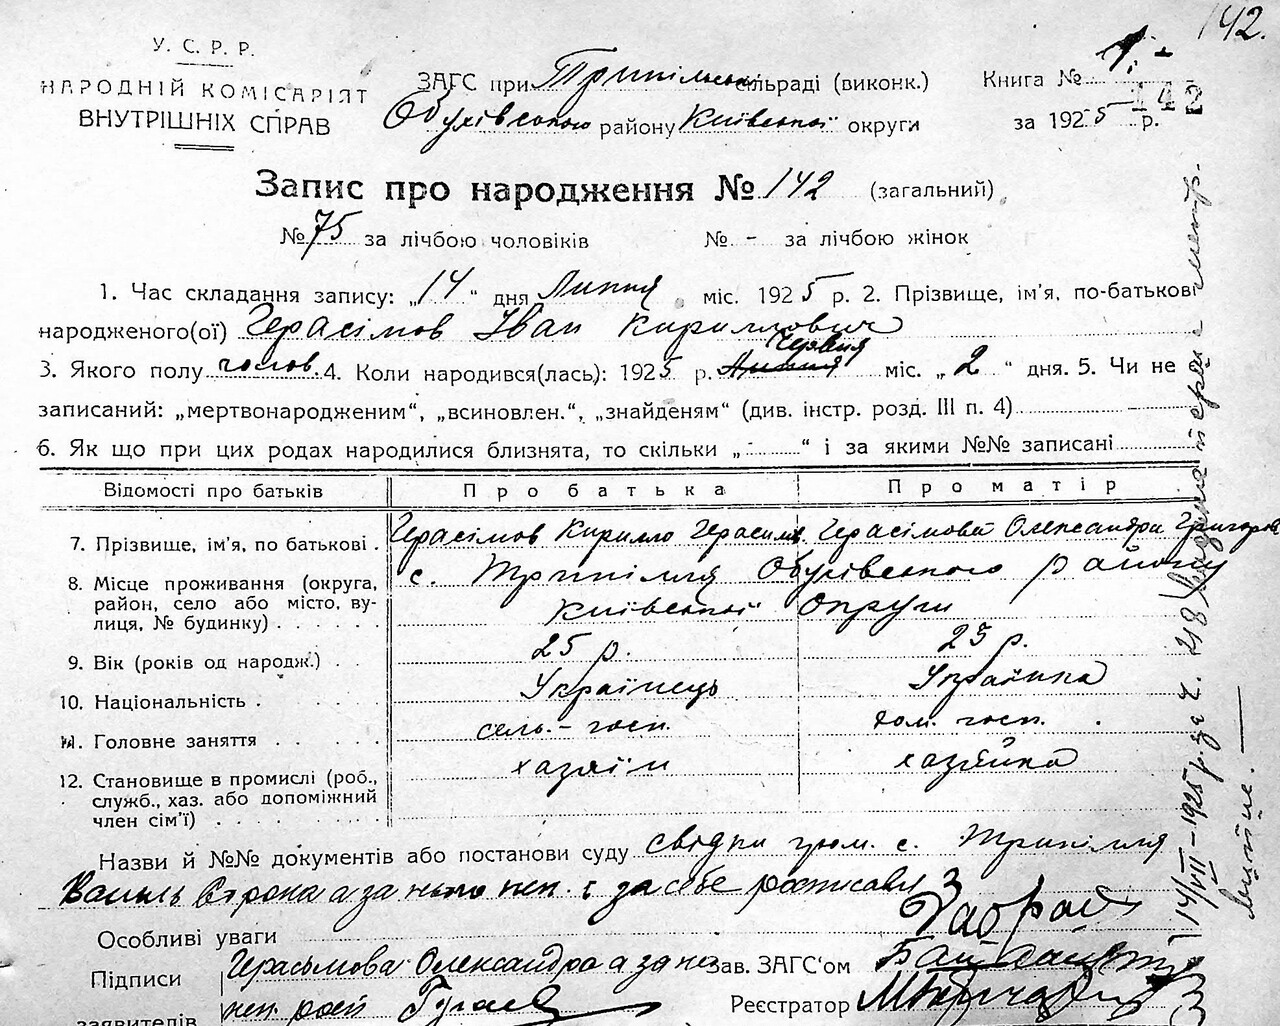 142.
У. С. Р. Р.
НАРОДНІЙ КОМІСАРІЯТ
ВНУТРІШНІХ СПРАВ
ЗАГС при Трипільськ сільраді (виконк.)
Обухівського району Київської округи
Книга № 1.
142
за 1925 р.
Запис про народження № 142 (загальний)
№ 75 за лічбою чоловіків № - за лічбою жінок
1. Час складання запису: „14“ дня Липня міс. 1925 р. 2. Прізвище, ім'я, по-батькові
народженого(ої) Герасімов Іван Кириллович
Червня
3. Якого полу чолов. 4. Коли народився(лась): 1925 р. Липня міс. „2“ дня. 5. Чи не
записаний: „мертвонародженим“, „всиновлен.“, „знайденям“ (див. інстр. розд. III п. 4)
6. Як що при цих родах народилися близнята, то скільки „ “ і за якими №№ записані
Відомості про батьків Про батька Про матір
7. Прізвище, ім'я, по батькові . Герасімов Кирилло Герасим. Герасімова Олександра Григоров
8. Місце проживання (округа, район, село або місто, вулиця, № будинку) с. Трипілля Обухівського району
Київської Округи
9. Вік (років од народж.) 25 р. 23 р.
10. Національність . Українець Українка
11. Головне заняття сель.-госп. дом. госп.
12. Становище в промислі (роб., хазяїн хазяйка
служб., хаз. або допоміжний
член сім'ї)
Назви й №№ документів або постанови суду свідки гром. с. Трипілля
Василь а за нього неп. і за себе росписавсь
Особливі уваги
Підписи Герасьмова Олександра а за неї Зав. ЗАГС'ом
заявителів неп. росп. Реєстратор
14/VII-1925 р. за ч. 418 видана метр.